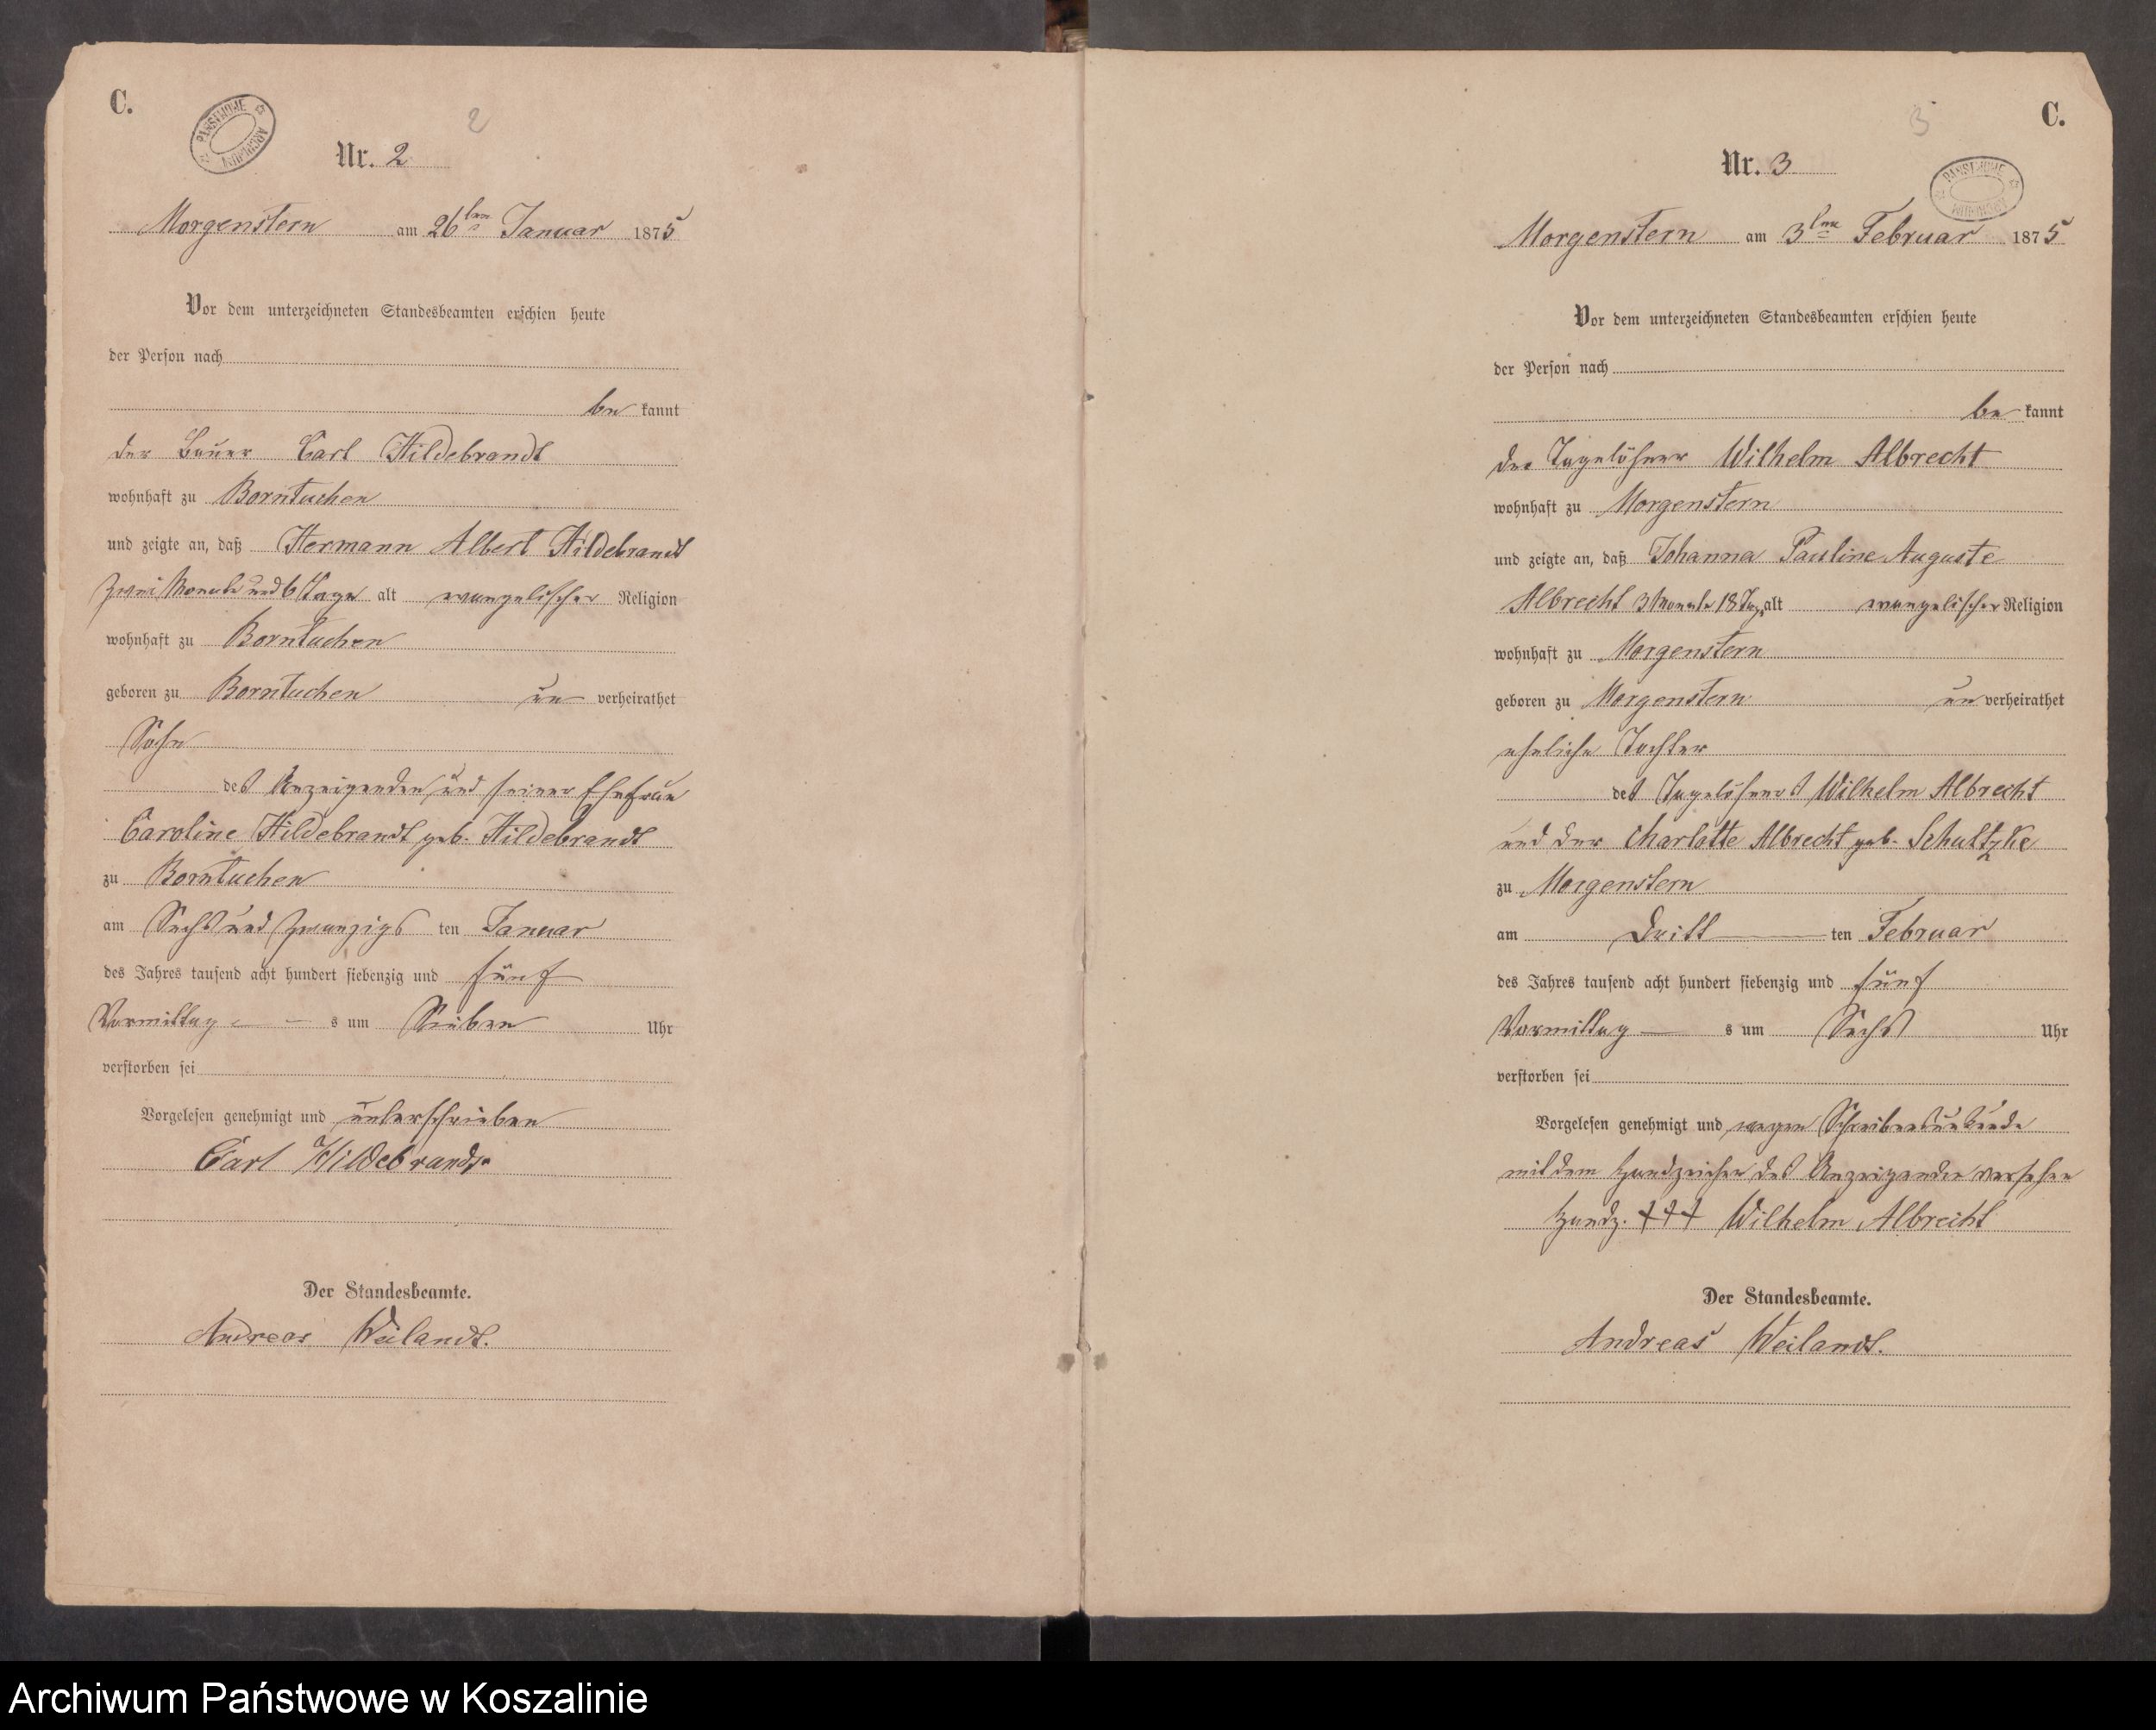 C.
PAŃSTWOWE ARCHIWUM
2
Nr. 2
Morgenstern am 26ten Januar 1875
Vor dem unterzeichneten Standesbeamten erschien heute
der Person nach
be kannt
der Bauer Carl Hildebrandt
wohnhaft zu Borntuchen
und zeigte an, daß Hermann Albert Hildebrandt
zwei Monate und 6 Tage alt evangelischer Religion
wohnhaft zu Borntuchen
geboren zu Borntuchen un verheirathet
Sohn
des Anzeigenden und seiner Ehefrau
Caroline Hildebrandt geb. Hildebrandt
zu Borntuchen
am Sechs und zwanzigs ten Januar
des Jahres tausend acht hundert siebenzig und fünf
Vormittag s um Sieben Uhr
verstorben sei
Vorgelesen genehmigt und unterschrieben
Carl Hildebrandt
Der Standesbeamte.
Andreas Weilandt.
3
C.
Nr. 3
PAŃSTWOWE ARCHIWUM
Morgenstern am 3ten Februar 1875
Vor dem unterzeichneten Standesbeamten erschien heute
der Person nach
be kannt
der Tagelöhner Wilhelm Albrecht
wohnhaft zu Morgenstern
und zeigte an, daß Johanna Pauline Auguste
Albrecht 3 Monate 18 Tag alt evangelischer Religion
wohnhaft zu Morgenstern
geboren zu Morgenstern un verheirathet
eheliche Tochter
des Tagelöhners Wilhelm Albrecht
und der Charlotte Albrecht geb. Schultzke
zu Morgenstern
am Dritt ten Februar
des Jahres tausend acht hundert siebenzig und fünf
Vormittag s um Sechs Uhr
verstorben sei
Vorgelesen genehmigt und wegen Schreibensunkunde
mit dem Handzeichen des Anzeigenden versehen
Handz. +++ Wilhelm Albrecht
Der Standesbeamte.
Andreas Weilandt.
Archiwum Państwowe w Koszalinie